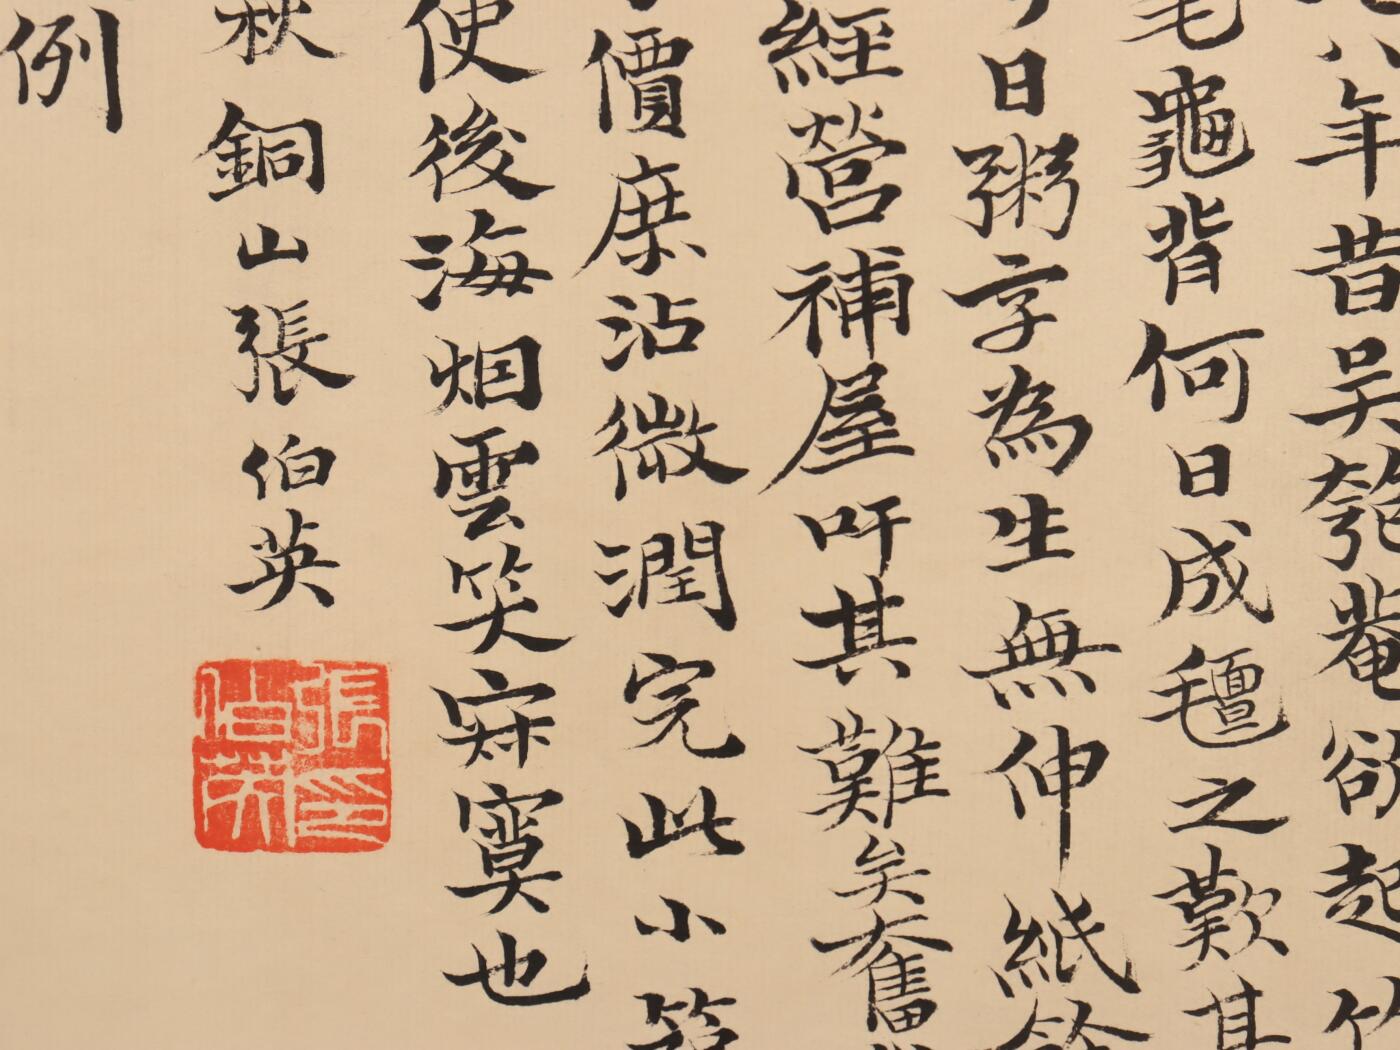 八年昔吳匏菴欲起竹
毛龜背何日成氊之歎其
日粥字為生無伸紙
經營補屋吁其難矣奮
價庶沾微潤完此小築
使後海烟雲笑寂寞也
秋銅山張伯英
例
張伯英印